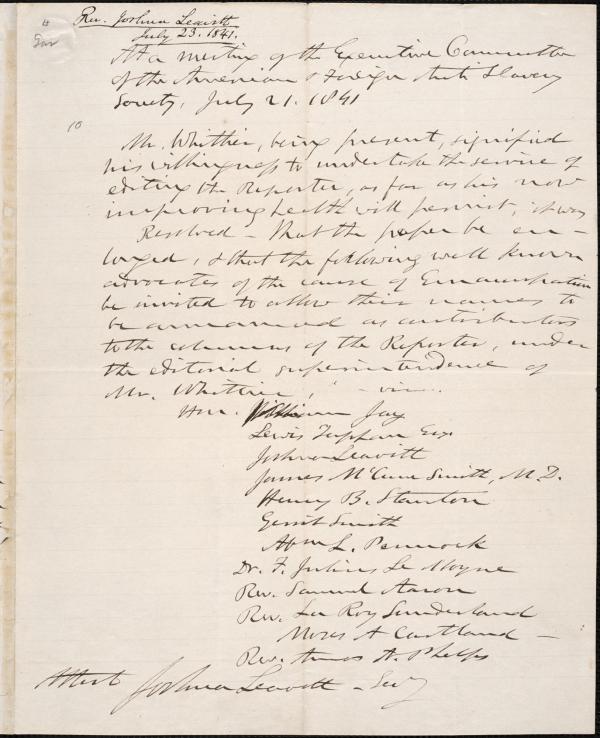 Rev. Joshua Leavitt
July 23. 1841.
At a meeting of the Executive Committee
of the American & Foreign Anti Slavery
Society, July 21. 1841
10
Mr. Whittier, being present, signified
his willingness to undertake the service of
editing the Reporter, as far as his now
improving health will permit, it was
Resolved - That the paper be en-
larged, & that the following well known
advocates of the cause of Emancipation
be invited to allow their names to
be announced as contributors
to the columns of the Reporter, under
the editorial superintendence of
Mr. Whittier, - viz.
Hon. William Jay
Lewis Tappan Esq
Joshua Leavitt
James McCune Smith, M.D.
Henry B. Stanton
Gerrit Smith
Abm L. Pennock
Dr. F. Julius Le Moyne
Rev. Samuel Aaron
Rev. La Roy Sunderland
Moses A Cartland -
Rev. Amos A. Phelps
Attest Joshua Leavitt - Secy